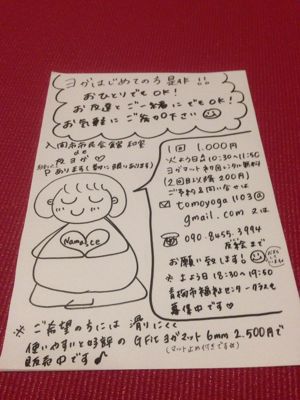 ヨガはじめての方是非!!
おひとりでもOK!
お友達とご一緒にでもOK!
お気軽にご参加下さい
入間市市民会館 和室
de
夜ヨガ
Pあります(数に限りあります)
Namaste
1回 1,000円
火よう日 10:30〜11:50
ヨガマット初回レンタル無料
(2回目以降 200円)
ご予約&問い合せは
tomoyoga1103@
gmail.com 又は
090.8455.3994
お願い致します!
※ よう日 18:30〜19:50
青梅市福祉センタークラスも
募集中です♡
※ ご希望の方には 滑りにくく
使いやすいと好評の GFit ヨガマット 6mm 2,500円で
(マットよめ付きです)
販売中です♪